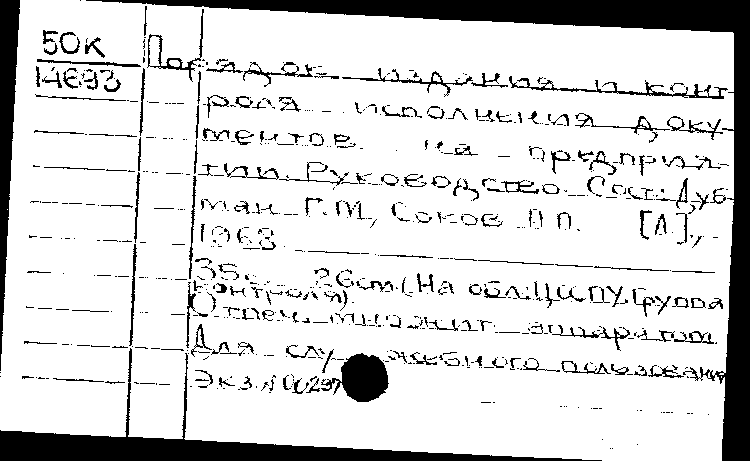 50к
14693
Порядок издания и конт-
роля исполнения доку-
ментов на предприя-
тии. Руководство. Сост.: Дуб-
ман Г.М., Соков П.П. [Л.],
1968
35с. 26см. (На обл.: ЦИСПУ. Группа
контроля).
Отпеч. множит. аппаратом
Для служебного пользования
Экз. N 00297